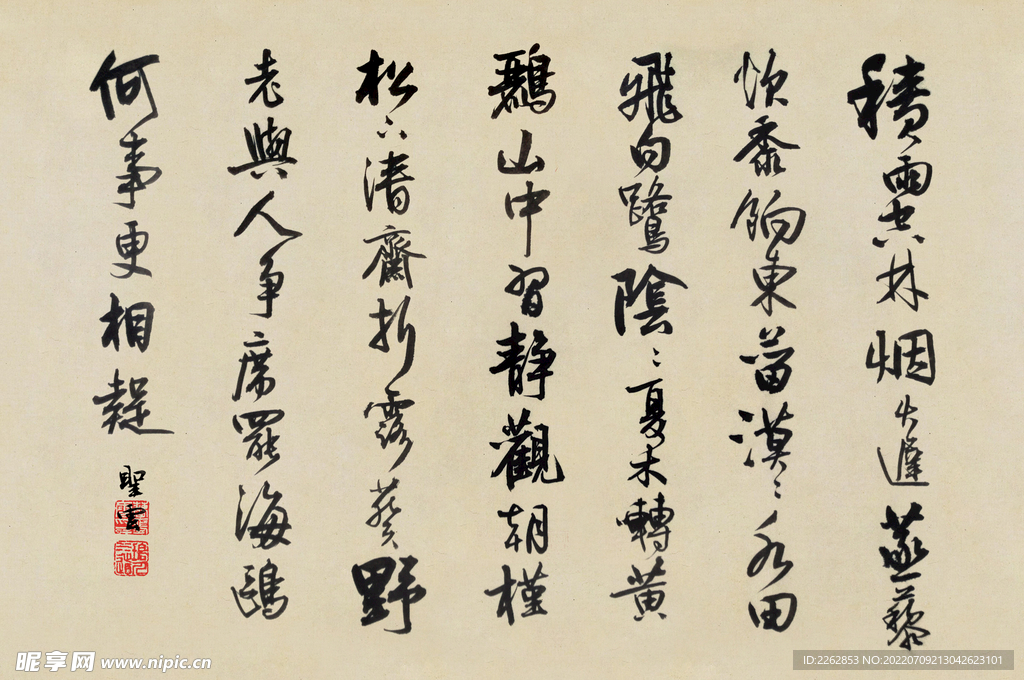 積雨空林烟火遲蒸藜
炊黍餉東菑漠〻水田
飛白鷺陰〻夏木囀黃
鸝山中習靜觀朝槿
松下清齋折露葵野
老與人爭席罷海鷗
何事更相疑
聖雲
昵享网 www.nipic.cn
ID:2262853 NO:20220709213042623101